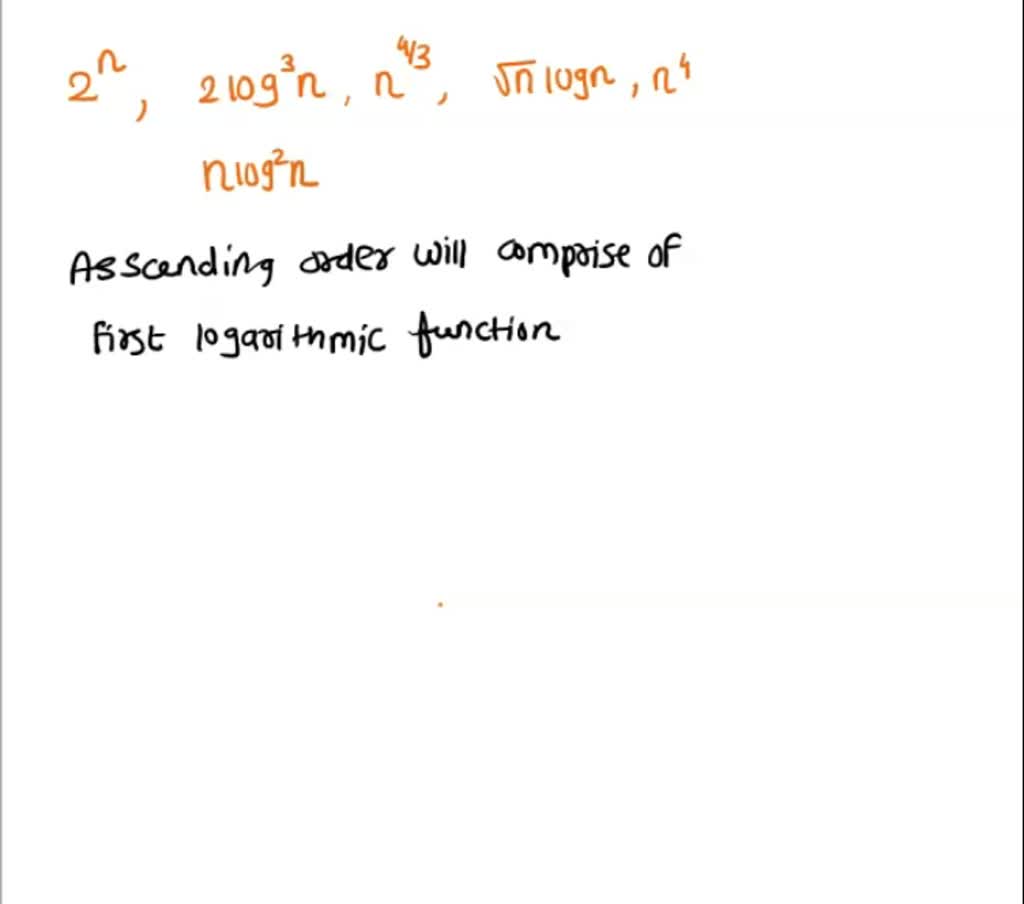 2ⁿ, 2log³n, n^4/3, √n logn, n⁴
nlog²n
Asscending order will comprise of
first logarithmic function